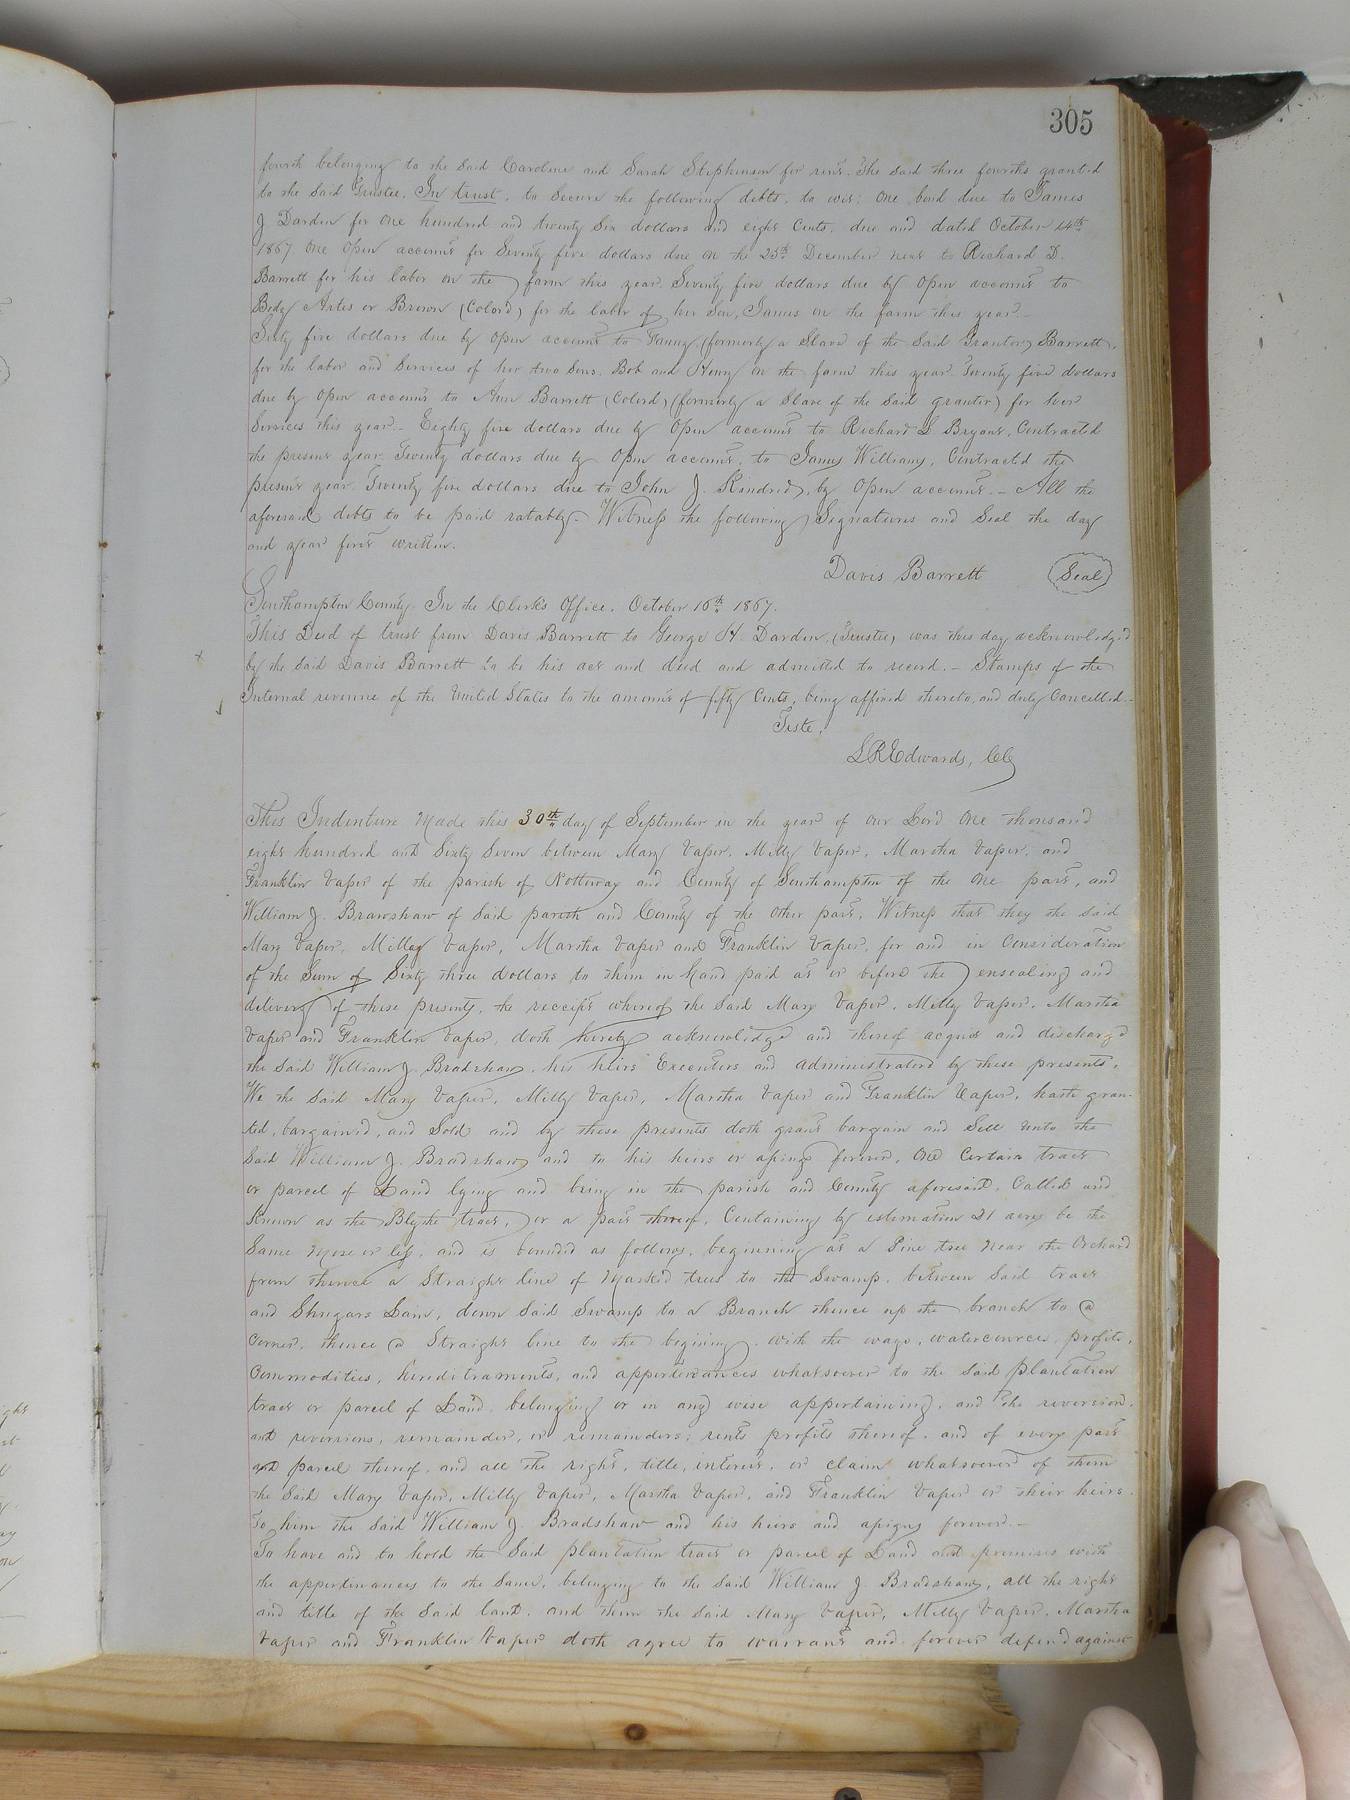 305
fourth belonging to the said Caroline and Sarah Stephenson for rent. The said three fourths granted
to the said Trustee, In trust, to secure the following debts, to wit: One bond due to James
J Darden for One hundred and twenty Six dollars and eight Cents, due and dated October 14th
1867. One Open account for Seventy five dollars due on the 25th December next to Richard D.
Barrett for his labor on the farm this year. Seventy five dollars due by Open account to
Artis or Brown (Colord) for the labor of her Son, James on the farm this year.
Sixty five dollars due by Open account to Fanny, (formerly a Slave of the Said Grantor) Barrett,
for the labor and Services of her two Sons. Bob and Henry on the farm this year. Twenty five dollars
due by Open account to Ann Barrett (Colord) (formerly a Slave of the Said grantor) for her
Services this year. – Eighty five dollars due by Open account to Richard L Bryant, Contracted
the present year. Twenty dollars due by Open account, to James Williams, Contracted the
present year. Twenty five dollars due to John J. Kindred, by Open account. – All the
aforesaid debts to be paid ratably. Witness the following Signatures and Seal the day
and year first written.
Davis Barrett (Seal)
Southampton County. In the Clerk's Office. October 16th 1867.
This Deed of trust from Davis Barrett to George H. Darden, (Trustee) was this day acknowledged
by the said Davis Barrett to be his act and deed and admitted to record. – Stamps of the
Internal revenue of the United States to the amount of fifty Cents, being affixed thereto, and duly Cancelled. –
Teste,
L R Edwards, CC
This Indenture Made this 30th day of September in the year of our Lord One thousand
eight hundred and Sixty Seven between Mary Vaper, Milly Vaper, Martha Vaper, and
Franklin Vaper of the parish of Nottoway and County of Southampton of the One part, and
William J. Brawshaw of Said parish and County of the Other part, Witness that they the said
Mary Vaper, Milley Vaper, Martha Vaper and Franklin Vaper, for and in Consideration
of the Sum of Sixty three dollars to them in hand paid at or before the ensealing and
delivery of these presents, the receipt whereof the Said Mary Vaper, Milly Vaper, Martha
Vaper and Franklin Vaper, doth hereby acknowledge and thereof acquit and discharge
the Said William J. Bradshaw, his heirs Executors and administrators by these presents,
We the Said Mary Vaper, Milly Vaper, Martha Vaper and Franklin Vaper, hath gran-
ted, bargain'd, and Sold and by these presents doth grant bargain and Sell unto the
Said William J. Bradshaw and to his heirs or assigns forever, One Certain tract
or parcel of Land lying and being in the parish and County aforesaid, Called and
Known as the Blythe tract, or a part thereof, Containing by estimation 21 acres be the
Same More or less, and is bounded as follows, beginning at a Pine tree near the Orchard
from thence a Straight line of Marked trees to the Swamp, between Said tract
and down Said Swamp to a Branch thence up the branch to a
Corner, thence a Straight line to the begining, with the ways, watercources, profits,
Commodities, hereditraments, and appertenances whatsoever to the Said plantation
tract or parcel of Land, belonging or in any wise appertaining, and the reversion,
and reversions, remainder, or remainders, rents profits thereof, and of every part
and parcel thereof, and all the right, title, interest, or claim whatsoever of them
the Said Mary Vaper, Milly Vaper, Martha Vaper, and Franklin Vaper or their heirs.
To him the Said William J. Bradshaw and his heirs and assigns forever. –
To have and to hold the Said plantation tract or parcel of Land and premises with
the appertenances to the Same, belonging to the Said William J. Bradshaw, all the right
and title of the Said land, and them the Said Mary Vaper, Milly Vaper, Martha
Vaper and Franklin Vaper doth agree to warrant and forever defend against